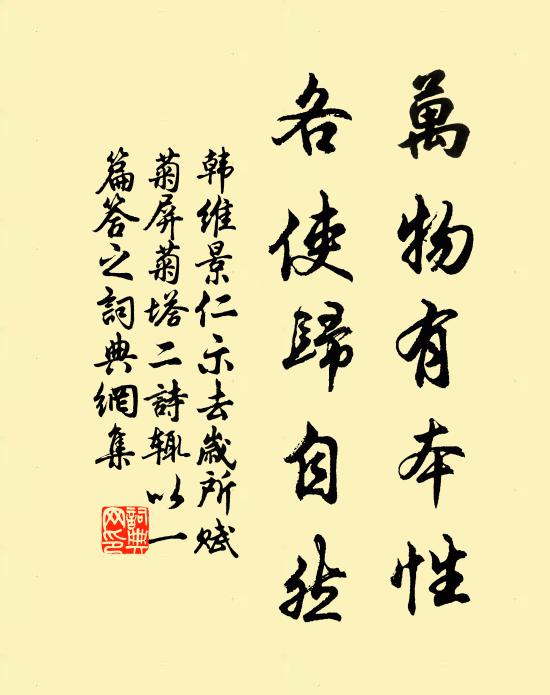 萬物有本性
各使歸自然
韩维景仁示去歲所赋
菊屏菊塔二詩辄以一
篇答之詞典網集
詞典
网印